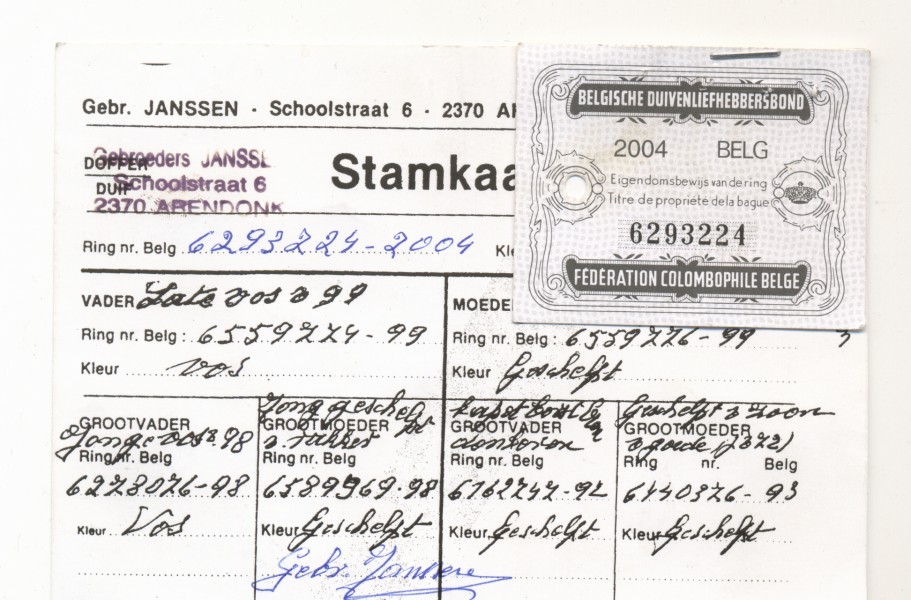 Gebr. JANSSEN · Schoolstraat 6 · 2370 A
BELGISCHE DUIVENLIEFHEBBERSBOND
2004 BELG
Eigendomsbewijs van de ring
Titre de propriété de la bague
6293224
FÉDÉRATION COLOMBOPHILE BELGE
DOFFER
DUIF
Gebroeders JANSSE
Schoolstraat 6
2370 ARENDONK
Stamkaa
Ring nr. Belg 6293224-2004 Kle
VADER Late vos v 99
MOEDE
Ring nr. Belg : 6559224-99
Ring nr. Belg : 6559226-99
Kleur vos
Kleur Geschelpt
GROOTVADER
Jonge vos v. 98
Ring nr. Belg
6278076-98
Kleur Vos
Jong geschelpt
GROOTMOEDER
Ring nr. Belg
6589969-98
Kleur Geschelpt
GROOTVADER
Ring nr. Belg
6762242-92
Kleur Geschelpt
Geschelpt v zoon
GROOTMOEDER
v goede (1372)
Ring nr. Belg
6440376-93
Kleur Geschelpt
Gebr. Janssen